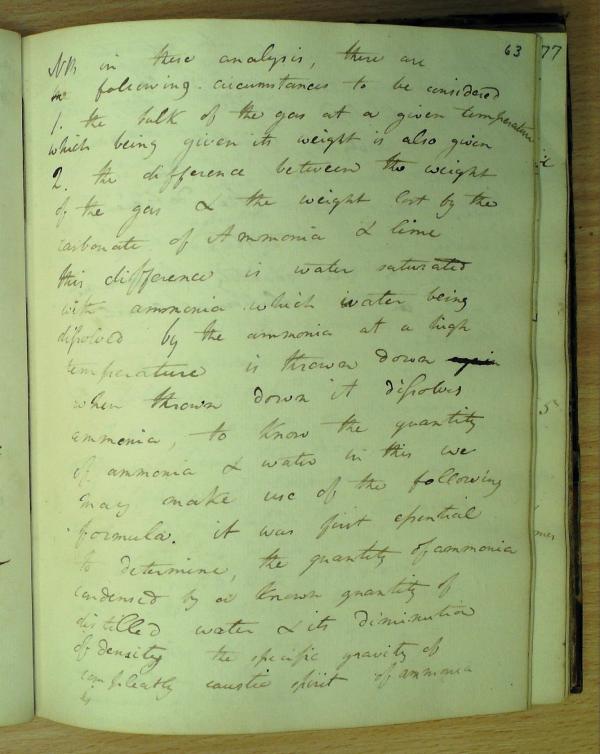 63
77
NB in these analysis, there are
the following circumstances to be considered
1. the bulk of the gas at a given temperature
which being given its weight is also given
2. the difference between the weight
of the gas & the weight lost by the
carbonate of Ammonia & lime
this difference is water saturated
with ammonia which water being
dissolved by the ammonia at a high
temperature is thrown down again
when thrown down it dissolves
ammonia, to know the quantity
of ammonia & water in this we
may make use of the following
formula. it was first essential
to determine, the quantity of ammonia
condensed by a known quantity of
distilled water & its diminution
of density the specific gravity of
compleatly caustic spirit of ammonia
is